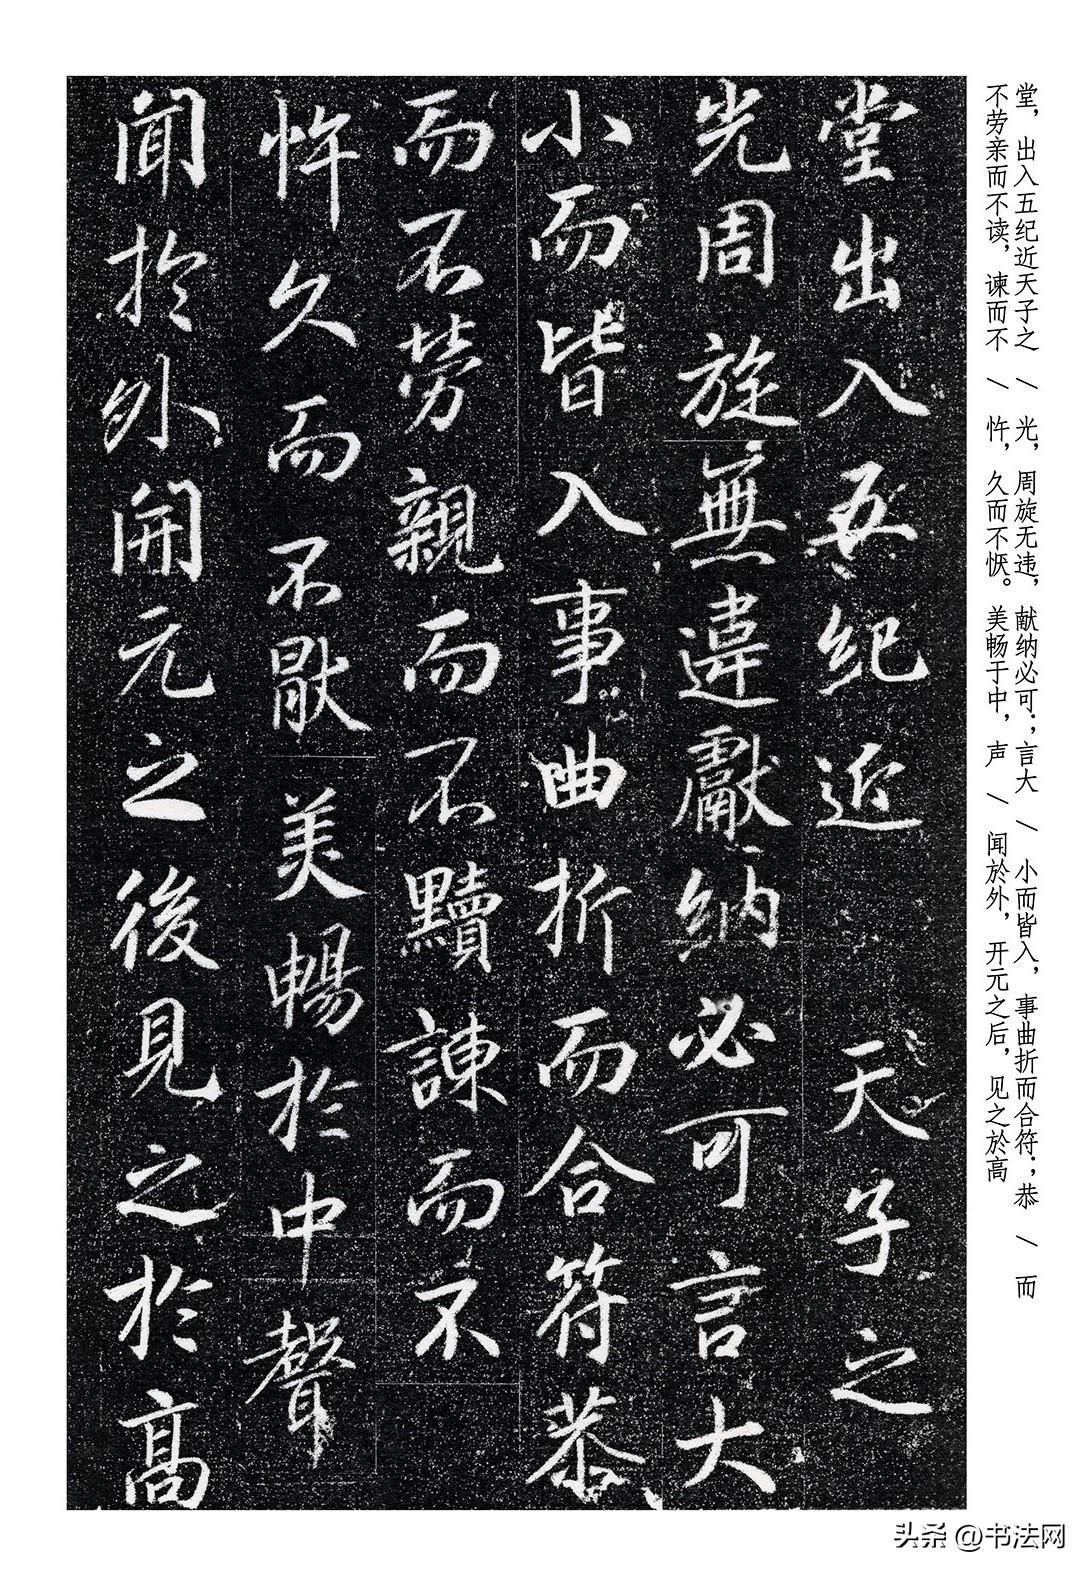 堂出入五紀近天子之
光周旋無違獻納必可言大
小而皆入事曲折而合符恭
而不勞親而不黷諫而不
忤久而不厭美暢於中聲
聞於外開元之後見之於高
堂，出入五纪近天子之 \ 光，周旋无违，献纳必可；言大 \ 小而皆入，事曲折而合符；恭 \ 而
不劳亲而不读，谏而不 \ 忤，久而不恹。美畅于中，声 \ 闻於外，开元之后，见之於高
头条 @书法网